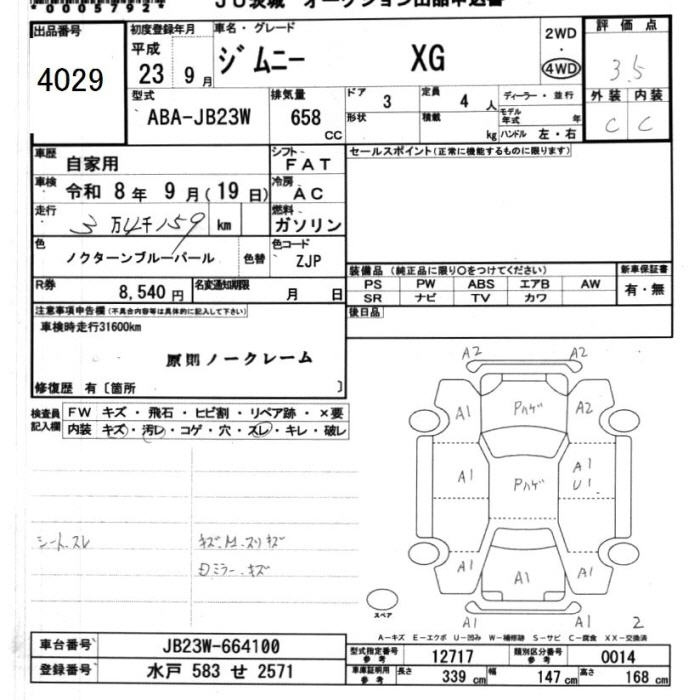 *0005792*
JU茨城 オークション出品申込書
出品番号
4029
初度登録年月
平成
23 9月
車名・グレード
ジムニー XG
2WD
・
4WD
評価点
3.5
外装 内装
C C
型式
ABA-JB23W
排気量
658
cc
ドア 3
定員 4 人
ディーラー・並行
形状
積載 kg
モデル年式 年
ハンドル 左・右
車歴 自家用
シフト FAT
セールスポイント(正常に機能するものに限ります)
車検 令和 8年 9月(19日)
冷房 AC
走行 3万4千159 km
燃料 ガソリン
色 ノクターンブルーパール 色替
色コード ZJP
R券 8,540円
名変通知期限 月 日
装備品 (純正品に限り○をつけてください)
新車保証書
PS PW ABS エアB AW
有・無
SR ナビ TV カワ
後日品
注意事項申告欄(不具合内容等は具体的に記入して下さい)
車検時走行31600km
原則ノークレーム
修復歴 有〔箇所 〕
検査員記入欄
FW キズ・飛石・ヒビ割・リペア跡・×要
内装 キズ・汚レ・コゲ・穴・スレ・キレ・破レ
シートスレ
キズ、M、スリキズ
ミラーキズ
A2 A2
A1 Pハゲ A2
A1 Pハゲ A1
U1
A1 A1 A1
A1 A1
スペア
2
A-キズ E-エクボ U-凹み W-補修跡 S-サビ C-腐食 XX-交換済
車台番号 JB23W-664100
登録番号 水戸 583 せ 2571
型式指定番号 参考 12717
類別区分番号 参考 0014
車庫証明用 参考 長さ 339cm 幅 147cm 高さ 168cm